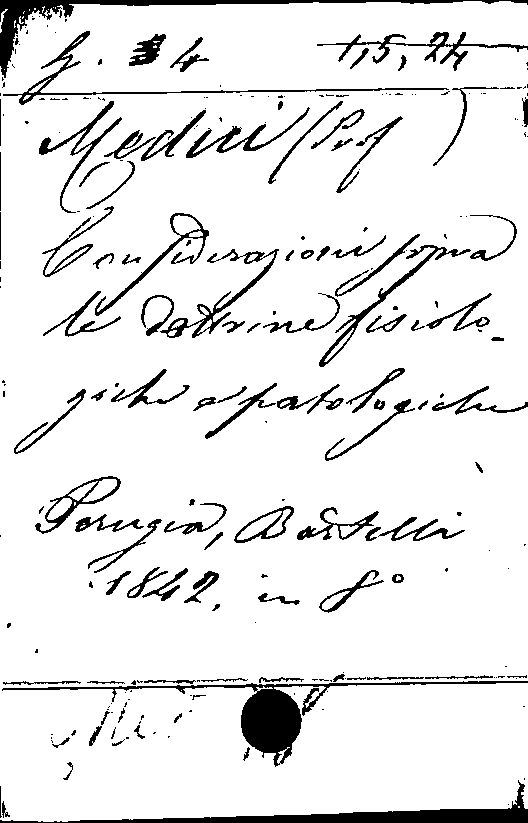 G. 4 1,5,24
Medici (Prof )
Considerazioni sopra
le dottrine fisiolo-
giche e patologiche
Perugia, Bartelli
1842. in 8°